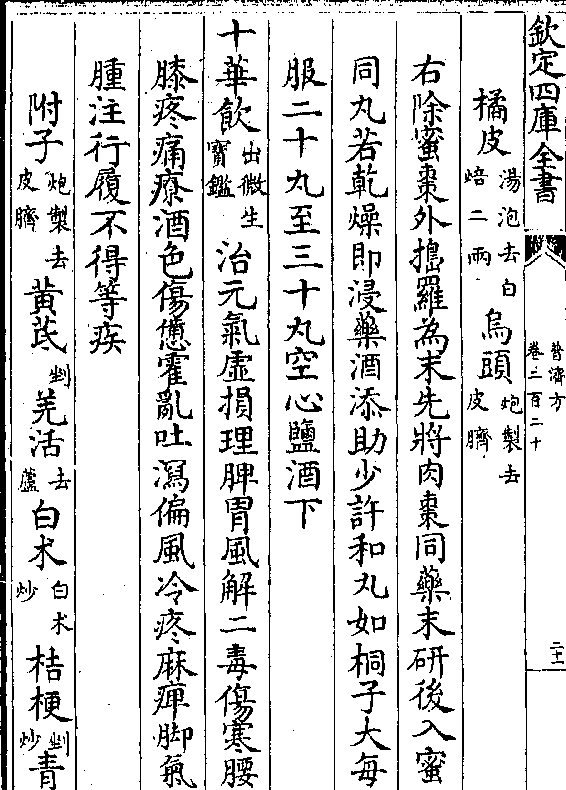 欽定四庫全書
普濟方
卷三百二十
二十一
橘皮湯泡去白焙二兩 烏頭炮製去皮臍
右除蜜棗外搗羅為末先將肉棗同藥末研後入蜜
同丸若乾燥即浸藥酒添助少許和丸如桐子大每
服二十丸至三十丸空心鹽酒下
十華飲出微生寶鑑 治元氣虛損理脾胃風解二毒傷寒腰
膝疼痛療酒色傷憊霍亂吐瀉偏風冷疼麻痺脚氣
腫注行履不得等疾
附子炮製去皮臍 黄芪剉 羌活去蘆 白术白术炒 桔梗剉炒 青